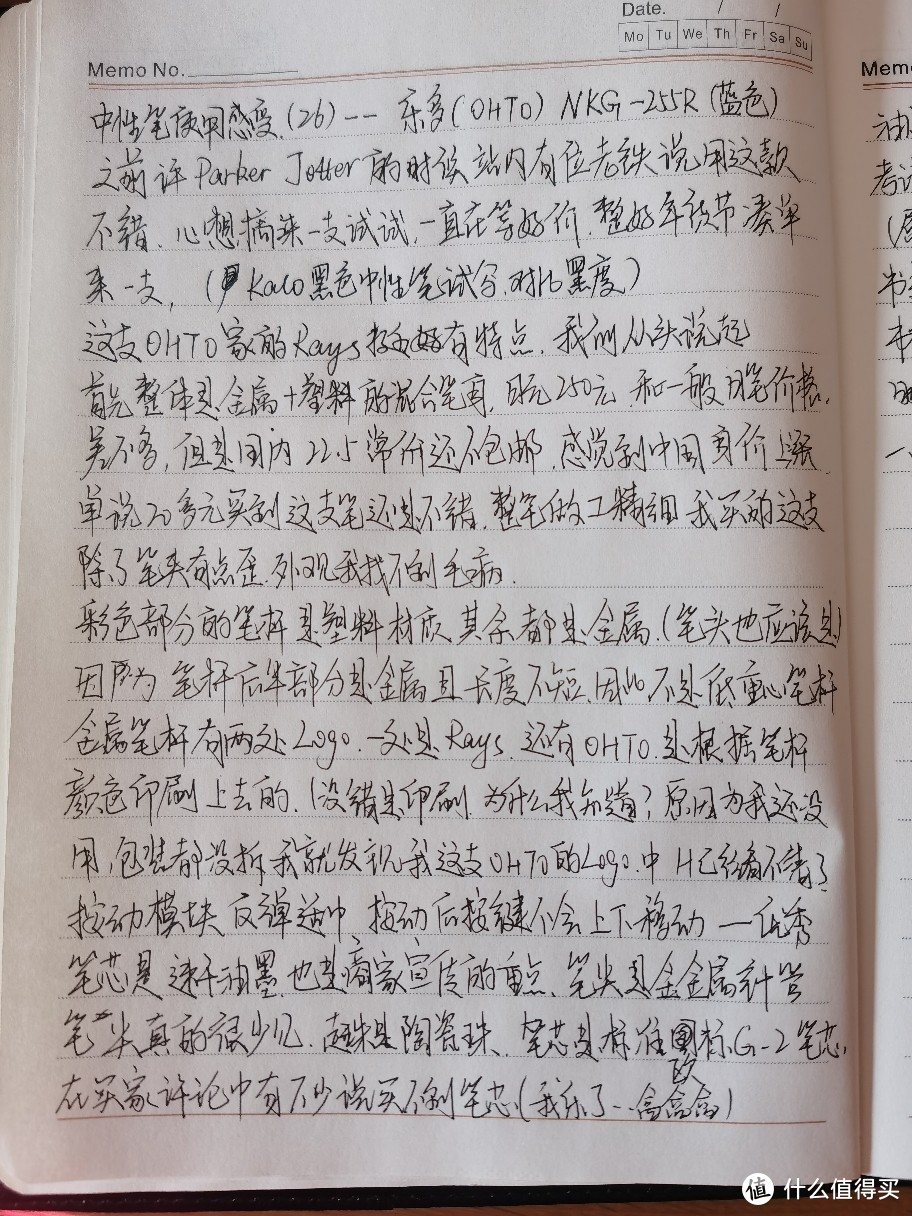 Date. / /
Mo Tu We Th Fr Sa Su
Memo No.
Memo
中性笔使用感受.(26) -- 乐多(OHTO) NKG-255R (蓝色)
之前评 Parker Jotter 的时候站内有位老铁说用这款
不错、心想搞来一支试试,一直在等好价.整好年货节凑单
来一支, (用Kaco黑色中性笔试写.对比黑度)
这支OHTO家的Rays 挺好有特点. 我们从头说起
首先整体是金属+塑料的混合笔身, 日元250元. 和一般用笔价格.
差不多, 但是国内 22.5 常价还不包邮. 感觉到中国身价上涨
单说20多元买到这支笔还是不错. 整笔做工精细 我买的这支
除了笔夹有点歪.外观我找不到毛病.
彩色部分的笔杆是塑料材质 其余都是金属.(笔头也应该是)
因为 笔杆后半部分是金属且长度不短.因此不是低重心笔杆
金属笔杆有两处Logo.一处是Rays.还有OHTO.是根据笔杆
颜色印刷上去的.(没错是印刷 为什么我知道? 原因为我还没
用,包装都没拆我就发现我这支OHTO的Logo.中 H已经看不清了
按动模块 反弹适中 按动后按键不会上下移动 一优秀
笔芯是 速干油墨.也是商家宣传的重点、笔尖是全金属针管
笔尖真的很少见. 球珠是陶瓷珠. 笔芯是标准欧标.G-2笔芯.
在买家评论中有不少说买不到笔芯(我乐了..
值 什么值得买